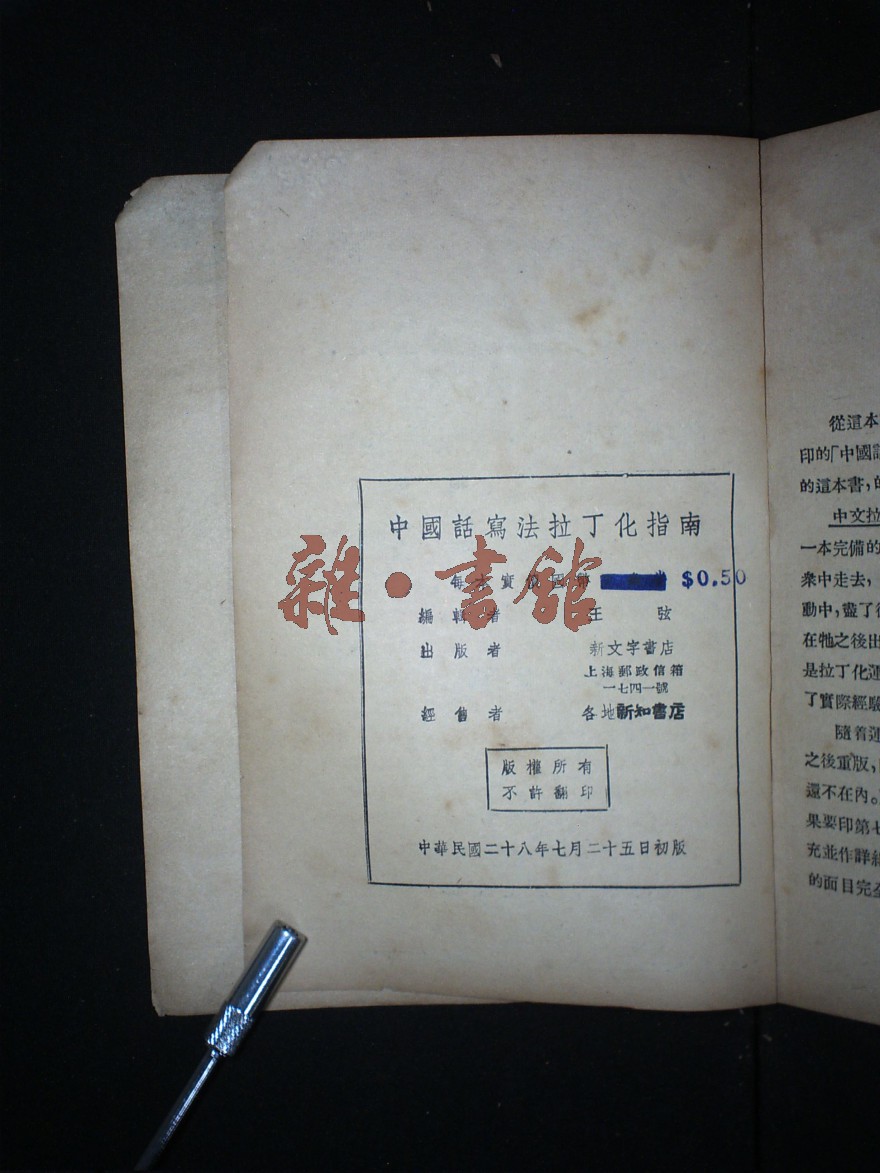 中國話寫法拉丁化指南
每本實價國幣 $0.50
編輯者 王弦
出版者 新文字書店
上海郵政信箱
一七四一號
經售者 各地新知書店
版權所有
不許翻印
中華民國二十八年七月二十五日初版
雜·書館
從這本
印的「中國話
的這本書,
中文拉
一本完備的
衆中走去,
動中,盡了
在牠之後出
是拉丁化運
了實際經驗
隨着運
之後重版,
還不在內。
果要印第七
充並作詳細
的面目完全